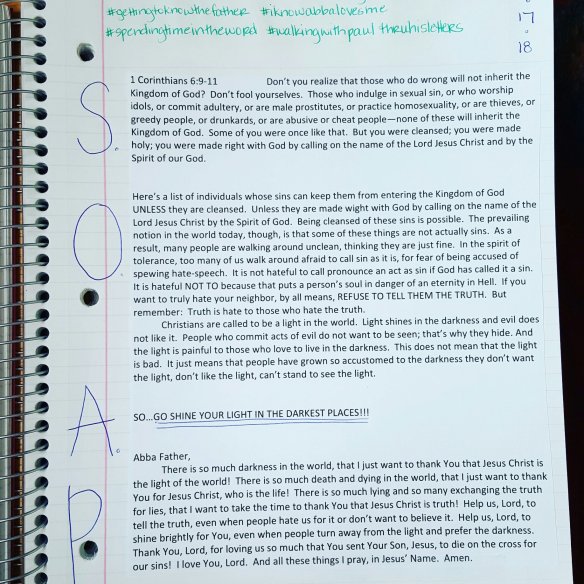 #gettingtoknowthefather #iknowabbalovesme
#spendingtimeintheword #walkingwithpaul thruhisletters
17
18
S.
1 Corinthians 6:9-11 Don't you realize that those who do wrong will not inherit the
Kingdom of God? Don't fool yourselves. Those who indulge in sexual sin, or who worship
idols, or commit adultery, or are male prostitutes, or practice homosexuality, or are thieves, or
greedy people, or drunkards, or are abusive or cheat people—none of these will inherit the
Kingdom of God. Some of you were once like that. But you were cleansed; you were made
holy; you were made right with God by calling on the name of the Lord Jesus Christ and by the
Spirit of our God.
O.
Here's a list of individuals whose sins can keep them from entering the Kingdom of God
UNLESS they are cleansed. Unless they are made wight with God by calling on the name of the
Lord Jesus Christ by the Spirit of God. Being cleansed of these sins is possible. The prevailing
notion in the world today, though, is that some of these things are not actually sins. As a
result, many people are walking around unclean, thinking they are just fine. In the spirit of
tolerance, too many of us walk around afraid to call sin as it is, for fear of being accused of
spewing hate-speech. It is not hateful to call pronounce an act as sin if God has called it a sin.
It is hateful NOT TO because that puts a person's soul in danger of an eternity in Hell. If you
want to truly hate your neighbor, by all means, REFUSE TO TELL THEM THE TRUTH. But
remember: Truth is hate to those who hate the truth.
Christians are called to be a light in the world. Light shines in the darkness and evil does
not like it. People who commit acts of evil do not want to be seen; that's why they hide. And
the light is painful to those who love to live in the darkness. This does not mean that the light
is bad. It just means that people have grown so accustomed to the darkness they don't want
the light, don't like the light, can't stand to see the light.
A.
SO...GO SHINE YOUR LIGHT IN THE DARKEST PLACES!!!
P
Abba Father,
There is so much darkness in the world, that I just want to thank You that Jesus Christ is
the light of the world! There is so much death and dying in the world, that I just want to thank
You for Jesus Christ, who is the life! There is so much lying and so many exchanging the truth
for lies, that I want to take the time to thank You that Jesus Christ is truth! Help us, Lord, to
tell the truth, even when people hate us for it or don't want to believe it. Help us, Lord, to
shine brightly for You, even when people turn away from the light and prefer the darkness.
Thank You, Lord, for loving us so much that You sent Your Son, Jesus, to die on the cross for
our sins! I love You, Lord. And all these things I pray, in Jesus' Name. Amen.